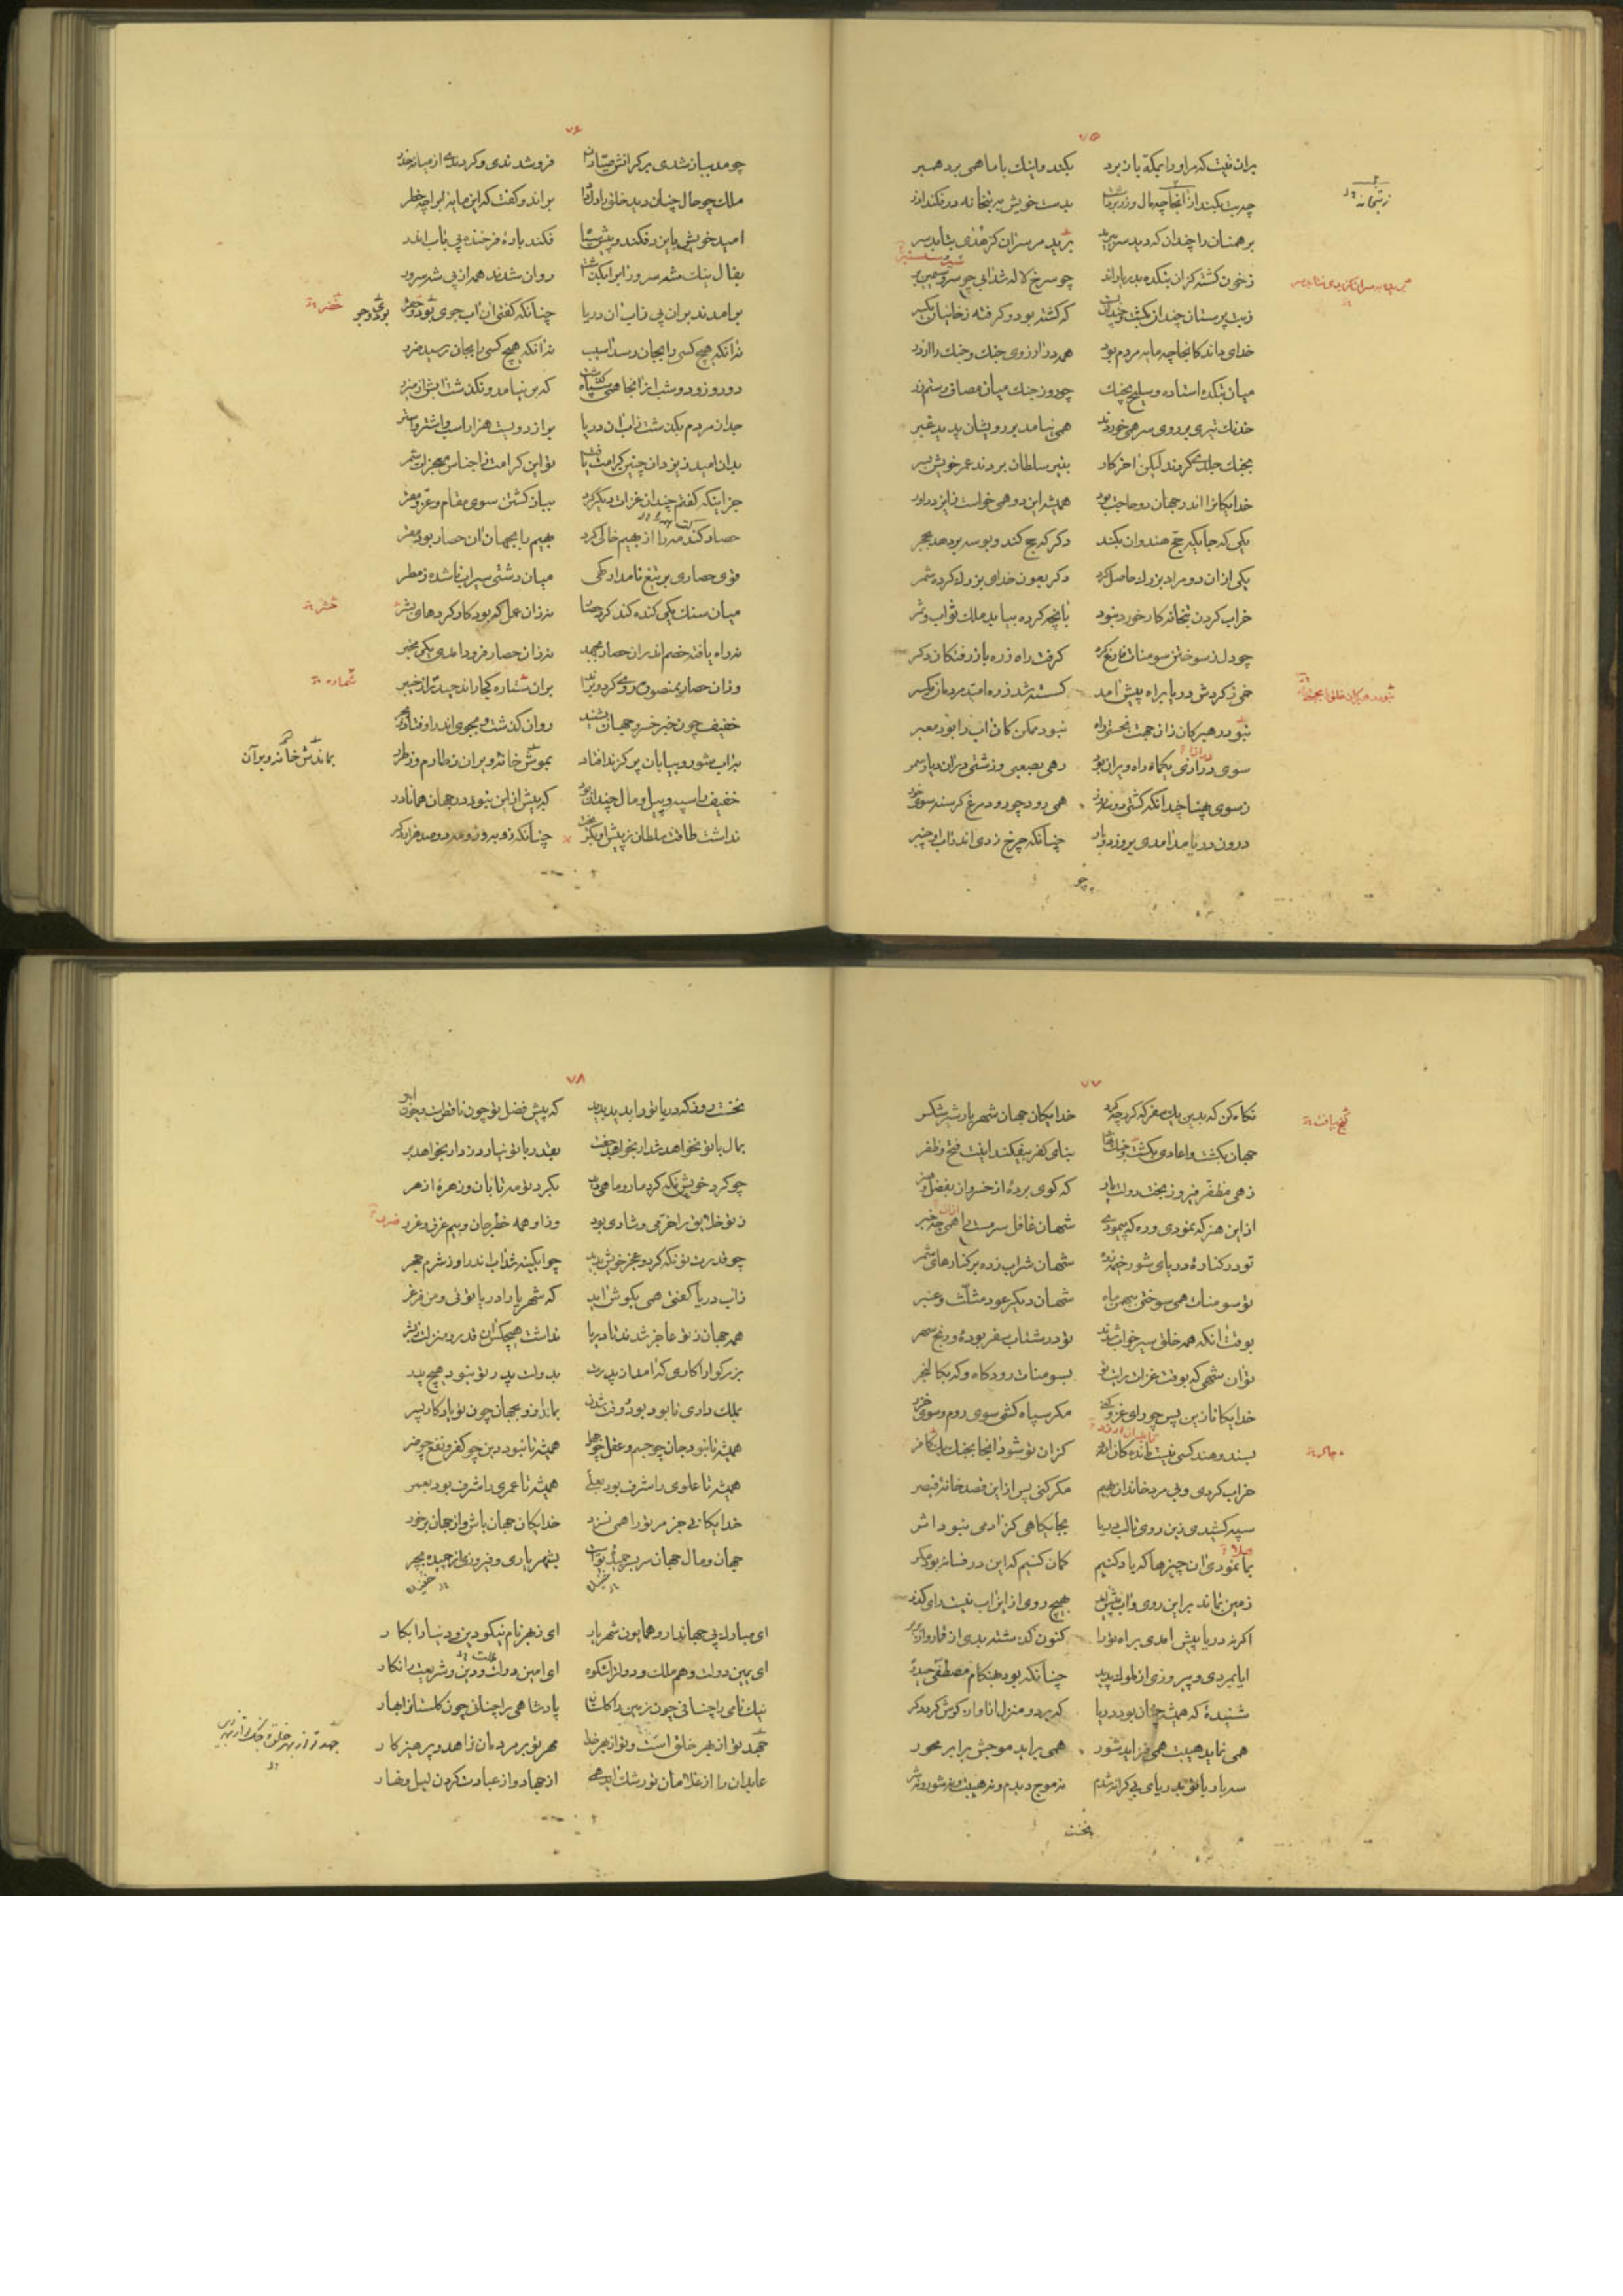 ۷۵
بران نیت که مراو را بمکه باز برد بکند و اینک با ما همی برد همبر
چو بت بکند از آنجا و مال و زر برداشت بدست خویش به بتخانه در فکند آذر
برهمنان را چندان که دید سر ببرید
ز خون کشته کزان بتکده بدریا راند چو سرخ لاله شد آبی چو
ز بت پرستان چندان بکشت و چندان بست که کشته بود و گرفته ز خانیان بکتر
خدای داند کانجا چه مایه مردم بود همه در آرزوی جنک و جنک را از در
میان بتکده استاده و سلیح بچنک چو روز جنک میان مصاف رستم زر
خدنک تیری بر روی سر همی خوردند همی نیامد بر رویشان پدید غیر
بجنک جلد همی کردند لیکن آخر کار بتیر سلطان بردند عمر خویش بسر
خدایکانرا اندر جهان دو حاجت بود همیشه این دو همی خواست ز ایزد داور
یکی که جایکه حج هندوان بکند دکر که حج کند و بوسه بر دهد بحجر
یکی ازان دو مراد بزرک حاصل کرد دکر بعون خدای بزرک کرده شمر
خراب کردن بتخانه کار خورد نبود بانچه کرده بیابد ملک ثواب و ثمر
چو دل ز سوختن سومنات فارغ کرد گرفت راه زره باز رفتکان دکر
خمی ز کردش دریا براه پیش آمد کسسته شد ز ره امید مردمان یکسر
نبود رهبر کان زان جهت بجستی راه نبود ممکن کان آب را بود معبر
سوی درازی یکماه راه ویران بود رهی بصعبی و زشتی دران دیار سمر
ز سوی پهنا چندانکه کشتی دو سه روز همی رود چو رود مرغ کرسنه سوی خور
درون دریا مد آمدی بروز دو بار چنانکه چرخ زدی اندر آب او چنبر
چو
۷۶
چو مد بباز شدی بر کرانش صیادان فرو شدندی و کردندی از میانه حذر
ملک چو حال چنان دید خلق را دل داد براند و گفت که این مایه آبرا چه خطر
امید خویش بایزد فکند و پیش سپاه فکند بارهٔ فرخنده پی بآب اندر
بفال نیک شه سرور آبرا بکذاشت روان شدند همه از پی شه سرور
برآمدند بران پی ز آب آن دریا چنانکه کفتی آن آب جوی بود و خضر
نه آنکه هیچ کسی را بجان رسد آسیب نه آنکه هیچ کسی را بجان رسید ضرر
دو روز و دو شب از آنجا همی سپاه کذشت که بر نیامد و نکذشت آبش از میزر
جدا ز مردم بکذشت ز آب آن دریا بر از دویست هزار اسب و اشتر و استر
بدان امید ز یزدان چنین کرامت یافت تو این کرامت ز اجناس معجزات شمر
جز اینکه کفتم چندان غزات دیکر کرد بباز کشتن سوی مقام عز و مقر
حصار کندهه را از بهیم خالی کرد بهیم را بجهان آن حصار بود مفر
قوی حصاری بر تیغ نامدار کهی میان دشتی سیراب ناشده ز مطر
میان سنک یکی کنده کند کرد حصار نه زان عمل که بود کار کردهای بشر
نه راه یافته خصم اندران حصار بجهد نه زان حصار فرود آمدی یکی بخبر
وزان حصار بمنصوره روی کرد و براند بران ستاره کجا راند حیدر از خیبر
خفیف چون خبر خسرو جهان بشنید روان کذشت و بجوی اندر اوفتاد و بجر
بآب شور و بیابان پر کزند افتاد بموش خانه ویران ز طارم و ز طزر
خفیف را سپه و پیل و مال چندان بود که بیش ازین نبود در جهان همانا در
نداشت طاقت سلطان ز پیش او بکریخت چنانکه زو بروز و مه دو صد هزار دکر
۷۷
نکاه کن که بدین یک سفر که کرد چه کرد خدایکان جهان شهریار شیر شکر
جهان بکشت و اعادی بکشت و کنج بیافت بنای کفر بیفکند اینت فتح و ظفر
زهی مظفر فیروز بخت دولت یار که کوی بردهٔ از خسروان بفضل و هنر
ازین هنر که نمودی و ره که پیمودی شهان غافل سرمست را همی چه خبر
تو در کنارهٔ دریای شور خیمه زده شهان شراب زده بر کنارهای شمر
تو سومنات همی سوختی ببهمن ماه شهان دیکر عود مثلث و عنبر
بوقت آنکه همه خلق سیر خواب شوند تو در شتاب سفر بودهٔ و رنج سهر
تو آن شهی که بوقت غزات رایت تو بسومنات رود کاه و که بکالنجر
خدایکانا زین پس چو رای غزو کنی مکر سپاه کشی سوی روم و سوی خزر
بسند و هند کسی نیست مانده کان ارزد کزان تو شود آنجا بجنک یک چاکر
خراب کردی و بی مرد خاندان بهیم مکر کنی پس ازین قصد خانهٔ قیصر
سپه کشیدی زین روی تا لب دریا بجایکاهی کز آدمی نبود اثر
بما نمودی آن چیزها که یاد کنیم کمان کنیم که این در فسانه بود مکر
زمین نماند برین روی و آب پیش آمد بهیچ روی ازین آب نیست رای کذر
اکر نه دریا پیش آمدی براه ترا کنون کذشته بدی از قمار و از بربر
ایا بمردی و پیروزی از ملوک پدید چنانکه بود بهنکام مصطفی حیدر
شنیدهٔ که همیشه چنان بود دریا که بر دو منزل از آواره کوش کردد کر
همی نماید هیبت همی فزاید شور همی برآید موجش برابر محور
سه بار با تو بدریای بی کرانه شدم نه موج دیدم و نه هیبت و نه شور و نه شر
نخست
۷۸
نخست روز که دریا ترا بدید بدید که پیش فضل تو چون ناقص است و چون ابتر
بمال با تو نخواهد شد ار بخواهد جفت بقدر با تو نیارد زد ار بخواهد بر
چو کرد خویش نکه کرد مار و ماهی دید بکرد تو مه تابان و زهرهٔ ازهر
ز تو خلایق را خرمی و شادی بود وزاو همه خطر جان و بیم غرق و غرر
چو قدرت تو نکه کرد و عجز خویش بدید چو آبکینه شد آب اندر او ز شرم حجر
ز آب دریا کفتی همی بکوش آمد که شهریارا دریا توئی و من فرغر
همه جهان ز تو عاجز شدند تا دریا نداشت هیچکس این قدر و منزلت ز بشر
بزرکوارا کاری که آمد از پدرت بدولت پدر تو نبود هیچ پدر
بملک داری تا بود بود و وقت شدن بماند ازو بجهان چون تو یادکار پسر
همیشه تا نبود جان چو جسم و عقل چو جهل همیشه تا نبود دین چو کفر و نفع چو ضر
همیشه تا علوی را شرف بود بعلی همیشه تا عمری را شرف بود بعمر
خدایکانی جز مر ترا همی نسزد خدایکان جهان باش وز جهان برخور
جهان و مال جهان سر بسر خنیدهٔ تست بشهریاری و فیروزی از خنیده بچر
ای مبارک پی جهاندار و همایون شهریار ای ز بهر نام نیکو دین و دنیا را بکار
ای یمین دولت و هم ملک و دولت را شکوه ای امین دولت و دین و شریعت را نکار
نیک نامی را چنانی چون زمین را کلستان پادشاهی را چنانی چون کلستانرا بهار
جهد تو از بهر خلق است و تو از بهر خدا مهر تو بر مردمان زاهد و پرهیزکار
عابدان را از غلامان تو رشک آید همی از جهاد و از عبادت کردن لیل و نهار